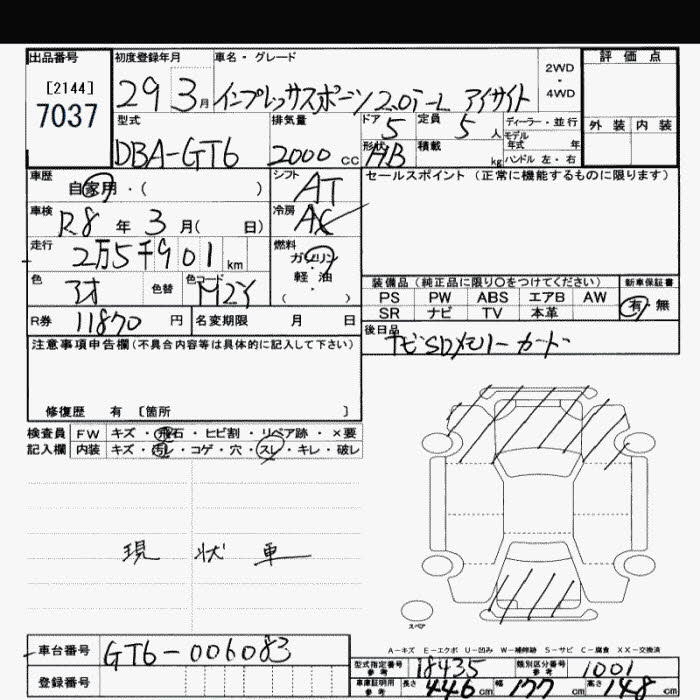 出品番号
[2144]
7037
初度登録年月
29 3月
車名・グレード
インプレッサスポーツ 2.0i-L アイサイト
2WD
・
4WD
評価点
外装 内装
型式
DBA-GT6
排気量
2000 cc
ドア 5
定員 5人
形状 HB
積載 kg
ディーラー・並行
モデル年式 年
ハンドル 左・右
車歴
自家用・( )
シフト
AT
車検
R8年 3月( 日)
冷房
AC
走行
2万5千901 km
燃料
ガソリン
・
軽・油
( )
色
色替
色コード
M2Y
R券 11870 円
名変期限 月 日
セールスポイント (正常に機能するものに限ります)
装備品 (純正品に限り○をつけてください)
PS PW ABS エアB AW
SR ナビ TV 本革
新車保証書
有 無
後日品
ナビSDメモリーカード
注意事項申告欄 (不具合内容等は具体的に記入して下さい)
修復歴 有 [箇所 ]
検査員 FW キズ・飛石・ヒビ割・リペア跡・×要
記入欄 内装 キズ・汚レ・コゲ・穴・スレ・キレ・破レ
現状車
スペア
A-キズ E-エクボ U-凹み W-補修跡 S-サビ C-腐食 XX-交換済
車台番号 GT6-006083
登録番号
型式指定番号 参考 18435
類別区分番号 参考 1001
車庫証明用 参考 長さ 446 cm 幅 177 cm 高さ 148 cm